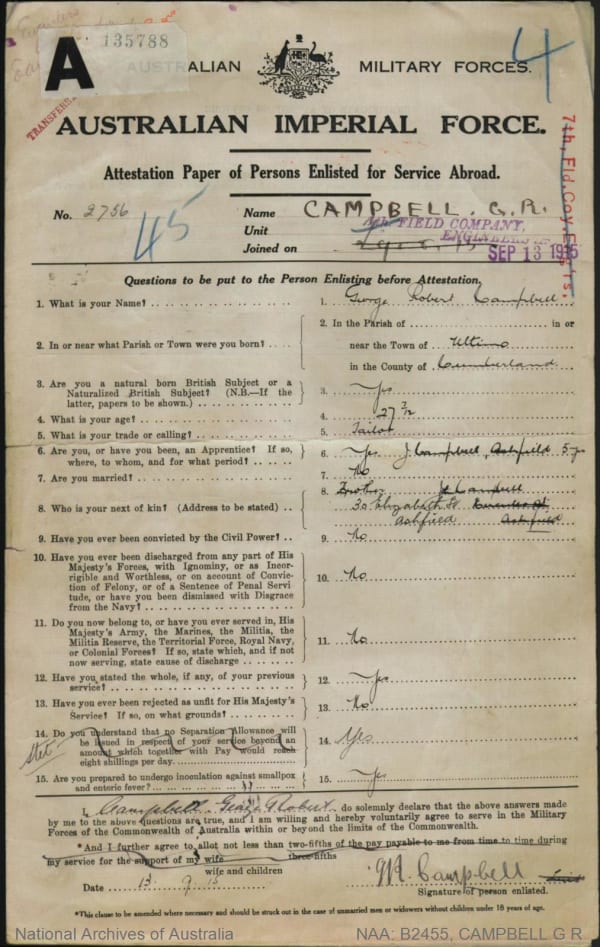 A
135788
TRANSFERS
AUSTRALIAN MILITARY FORCES.
4
AUSTRALIAN IMPERIAL FORCE.
Attestation Paper of Persons Enlisted for Service Abroad.
No. 2756
45
Name CAMPBELL. G.R.
Unit FIELD COMPANY, ENGINEERS
Joined on SEP 13 1915
7th, Fld. Coy. Engrs.
Questions to be put to the Person Enlisting before Attestation.
1. What is your Name? 1. George Robert Campbell
2. In or near what Parish or Town were you born? 2. In the Parish of in or
near the Town of Ultimo
in the County of Cumberland
3. Are you a natural born British Subject or a
Naturalized British Subject? (N.B.—If the
latter, papers to be shown.) 3. Yes
4. What is your age? 4. 27 7/12
5. What is your trade or calling? 5. Tailor
6. Are you, or have you been, an Apprentice? If so,
where, to whom, and for what period? 6. Yes J. Campbell, Ashfield 5 yrs
7. Are you married? 7. No
8. Who is your next of kin? (Address to be stated) 8. Brother J Campbell
30 Elizabeth St
Ashfield Ashfield
9. Have you ever been convicted by the Civil Power? 9. No
10. Have you ever been discharged from any part of His
Majesty's Forces, with Ignominy, or as Incor-
rigible and Worthless, or on account of Convic-
tion of Felony, or of a Sentence of Penal Servi-
tude, or have you been dismissed with Disgrace
from the Navy? 10. No
11. Do you now belong to, or have you ever served in, His
Majesty's Army, the Marines, the Militia, the
Militia Reserve, the Territorial Force, Royal Navy,
or Colonial Forces? If so, state which, and if not
now serving, state cause of discharge 11. No
12. Have you stated the whole, if any, of your previous
service? 12. Yes
13. Have you ever been rejected as unfit for His Majesty's
Service? If so, on what grounds? 13. No
stet
14. Do you understand that no Separation Allowance will
be issued in respect of your service beyond an
amount which together with Pay would reach
eight shillings per day. 14. Yes
15. Are you prepared to undergo inoculation against smallpox
and enteric fever? 15. Yes
I, Campbell George Robert do solemnly declare that the above answers made
by me to the above questions are true, and I am willing and hereby voluntarily agree to serve in the Military
Forces of the Commonwealth of Australia within or beyond the limits of the Commonwealth.
*And I further agree to allot not less than two-fifths of the pay payable to me from time to time during
my service for the support of my wife three-fifths
wife and children
Date 13 9 15 GR Campbell
Signature of person enlisted.
*This clause to be amended where necessary and should be struck out in the case of unmarried men or widowers without children under 18 years of age.
National Archives of Australia NAA: B2455, CAMPBELL G R